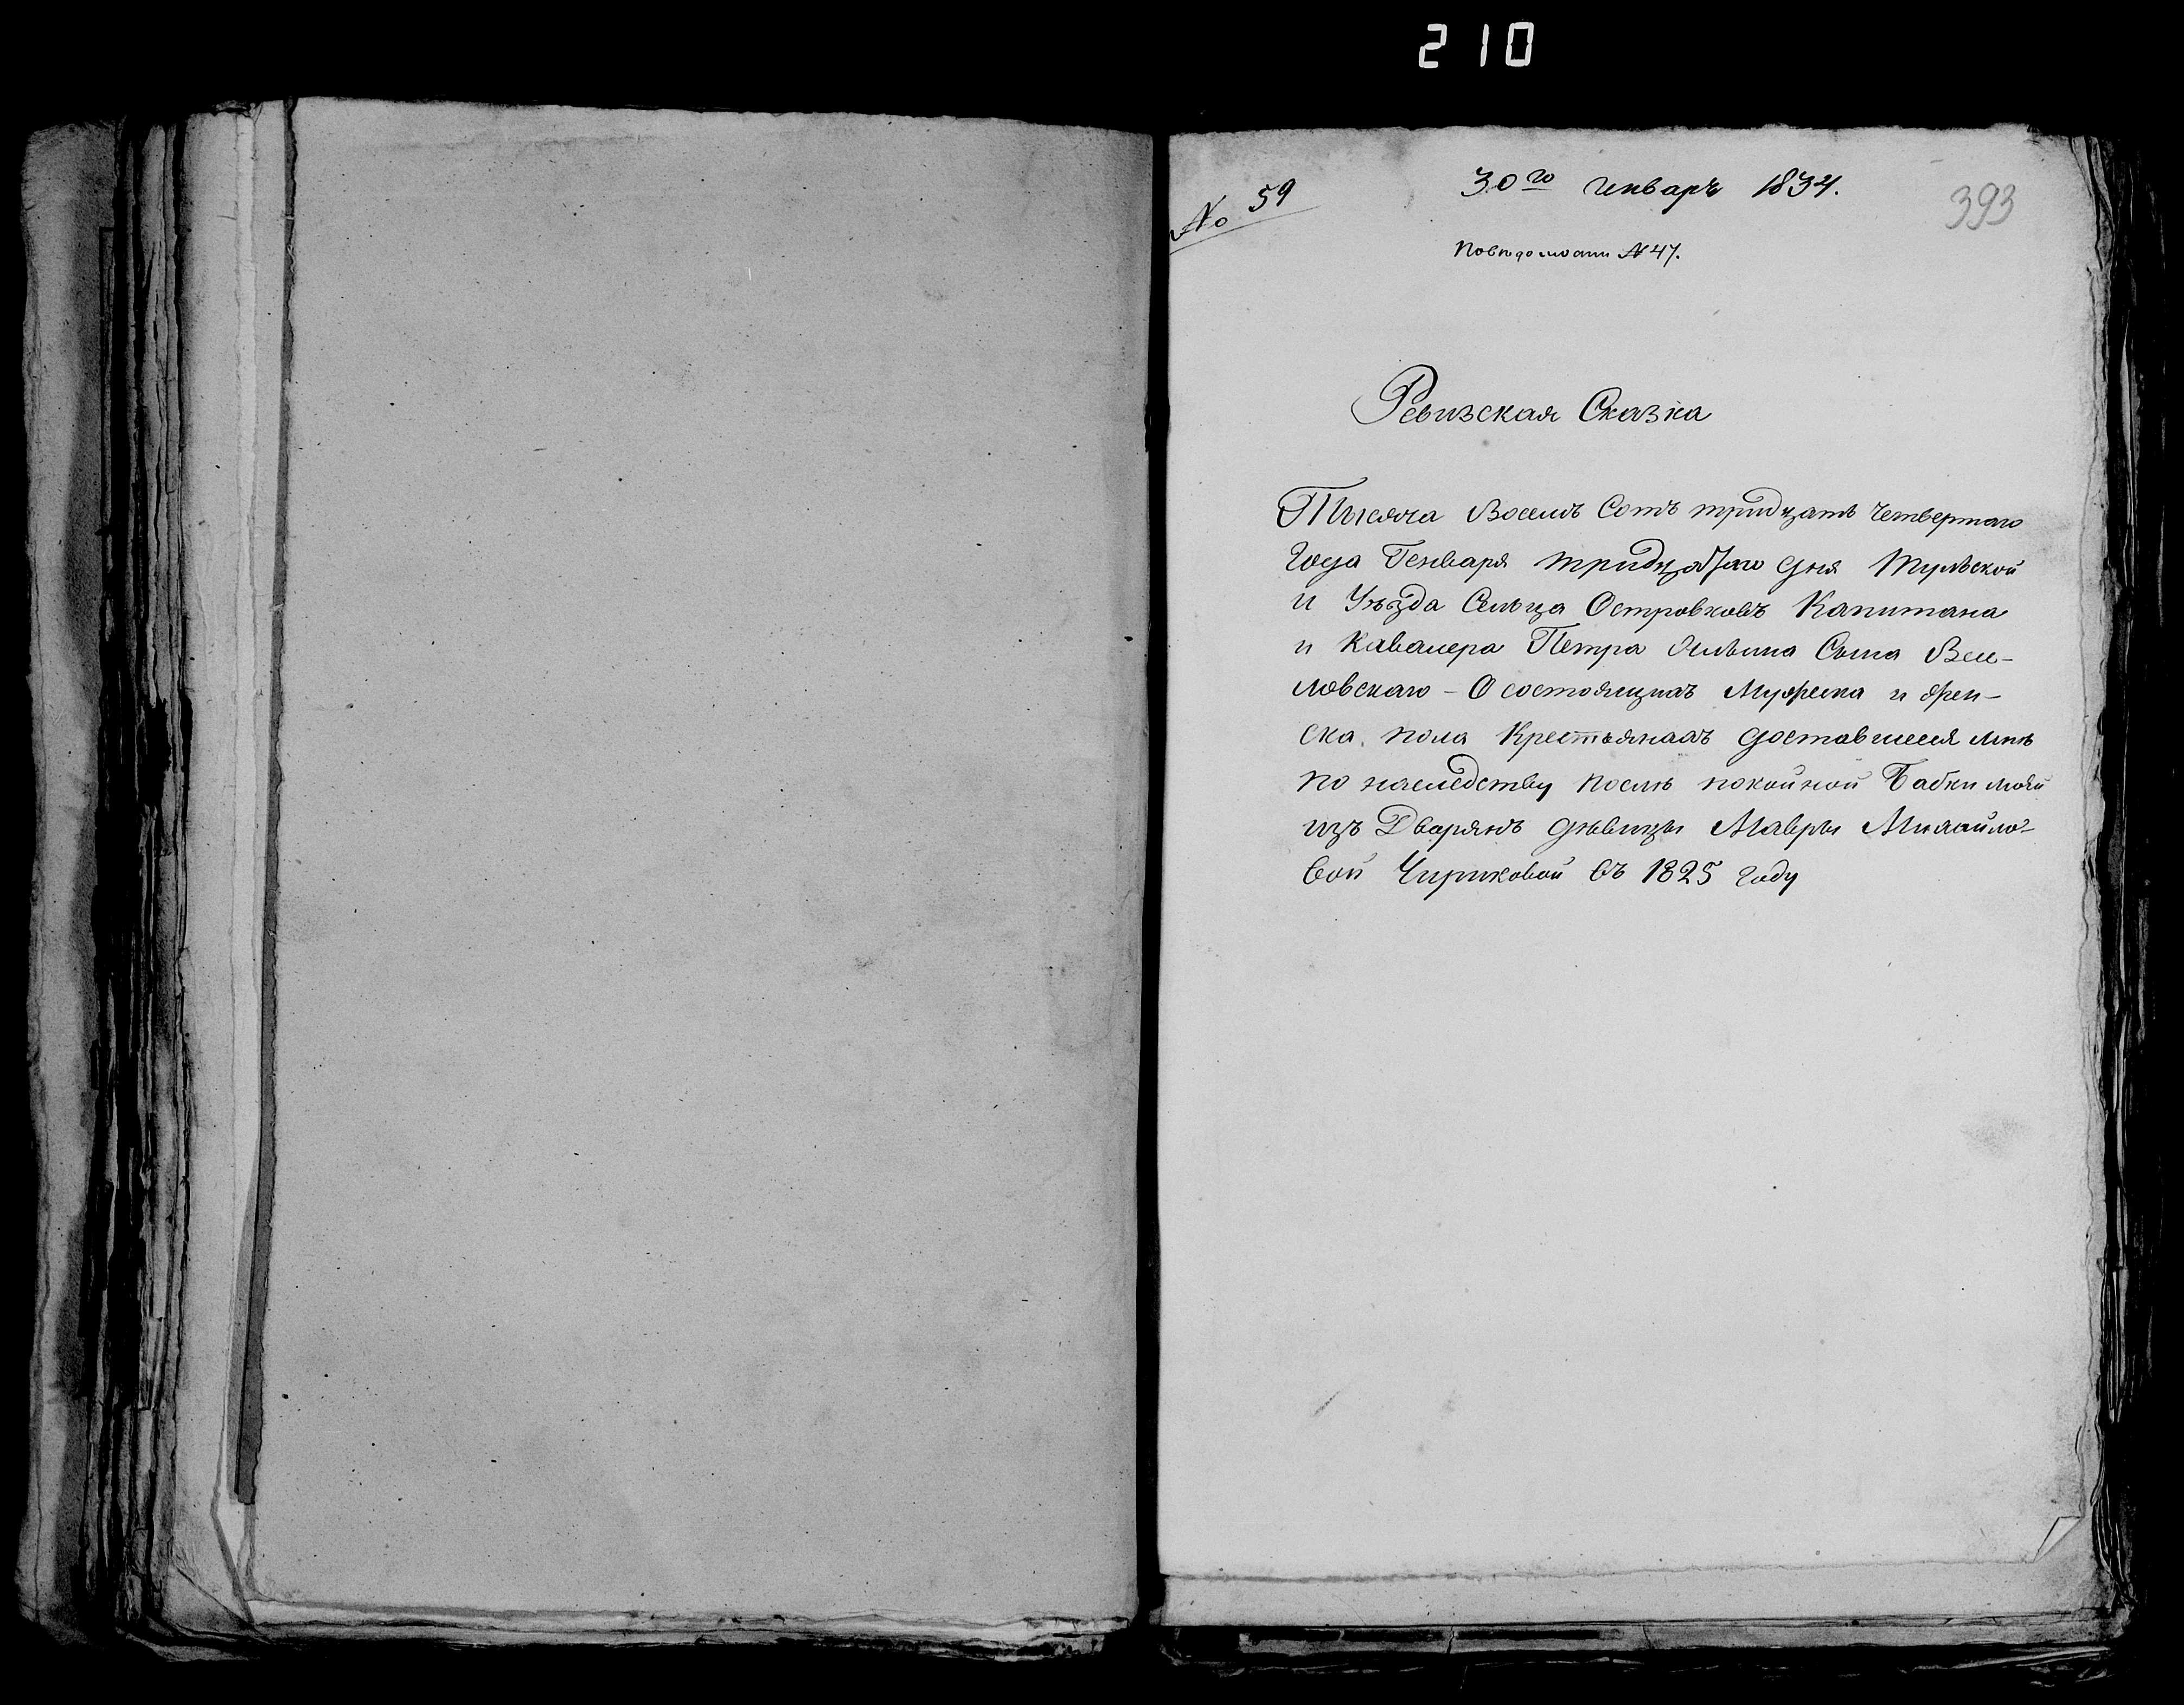 210
№ 59
30го генварь 1834.
393
По ведомости № 47.
Ревизская Сказка
Тысяча Восемъ Сотъ тридцать четвертаго
Года Генваря тридцатаго дня Тульской
и Уѣзда Сельца Островковъ Капитана
и Кавалера Петра Ильина Сына
ловскаго – О состоящихъ Мужеска и жен-
ска пола Крестьянахъ доставшихся мнѣ
по наследству послѣ покойной Бабки моей
изъ Дварянъ дѣвицы Мавры Михайло-
вой Чириковой въ 1825 году